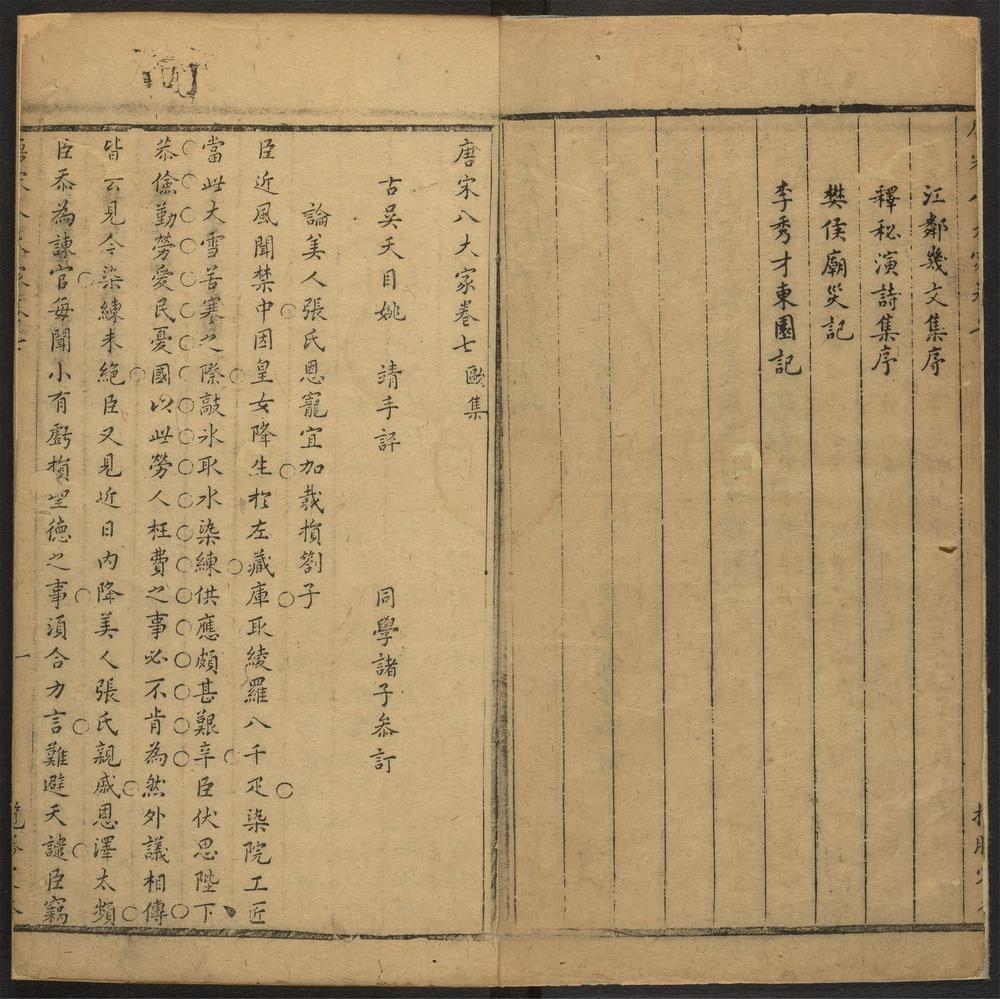 江鄰幾文集序
釋秘演詩集序
樊侯廟災記
李秀才東園記
唐宋八大家卷七 歐集
古吳天目姚 靖手評 同學諸子叅訂
論美人張氏恩寵宜加裁損劄子
臣近風聞禁中因皇女降生於左藏庫取綾羅八千疋染院工匠
當此大雪苦寒之際敲氷取水染練供應頗甚艱辛臣伏思陛下
恭儉勤勞愛民憂國以此勞人枉費之事必不肯為然外議相傳
皆云見今染練未絕臣又見近日內降美人張氏親戚恩澤太頻
臣忝為諫官每聞小有虧損聖德之事須合力言難避天譴臣竊
一